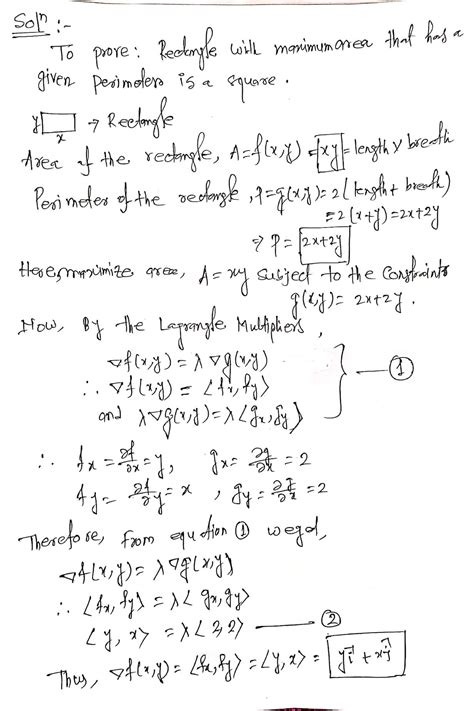 Solⁿ :-
To prove: Rectangle with maximum area that has a
given perimeters is a square.
y x → Rectangle
Area of the rectangle, A=f(x,y) = xy = length × breath
Perimeter of the rectangle, P=g(x,y)=2(length+ breath)
=2(x+y)=2x+2y
⇒ P = 2x+2y
Here, maximize area, A = xy subject to the constraints
g(x,y)= 2x+2y.
Now, By the Lagrangle Multipliers,
∇f(x,y) = λ ∇g(x,y)
∴ ∇f(x,y) = ⟨fx, fy⟩ — ①
and λ∇g(x,y)=λ⟨gx, gy⟩
∴ fx = ∂f/∂x = y, gx = ∂g/∂x = 2
fy = ∂f/∂y = x , gy = ∂g/∂x = 2
Therefore, from equation ① we get,
∇f(x,y) = λ ∇g(x,y)
∴ ⟨fx, fy⟩ = λ⟨gx, gy⟩
⟨y, x⟩ = λ⟨2,2⟩ — ②
Thus, ∇f(x,y) = ⟨fx, fy⟩ = ⟨y, x⟩ = yi⃗ + xj⃗